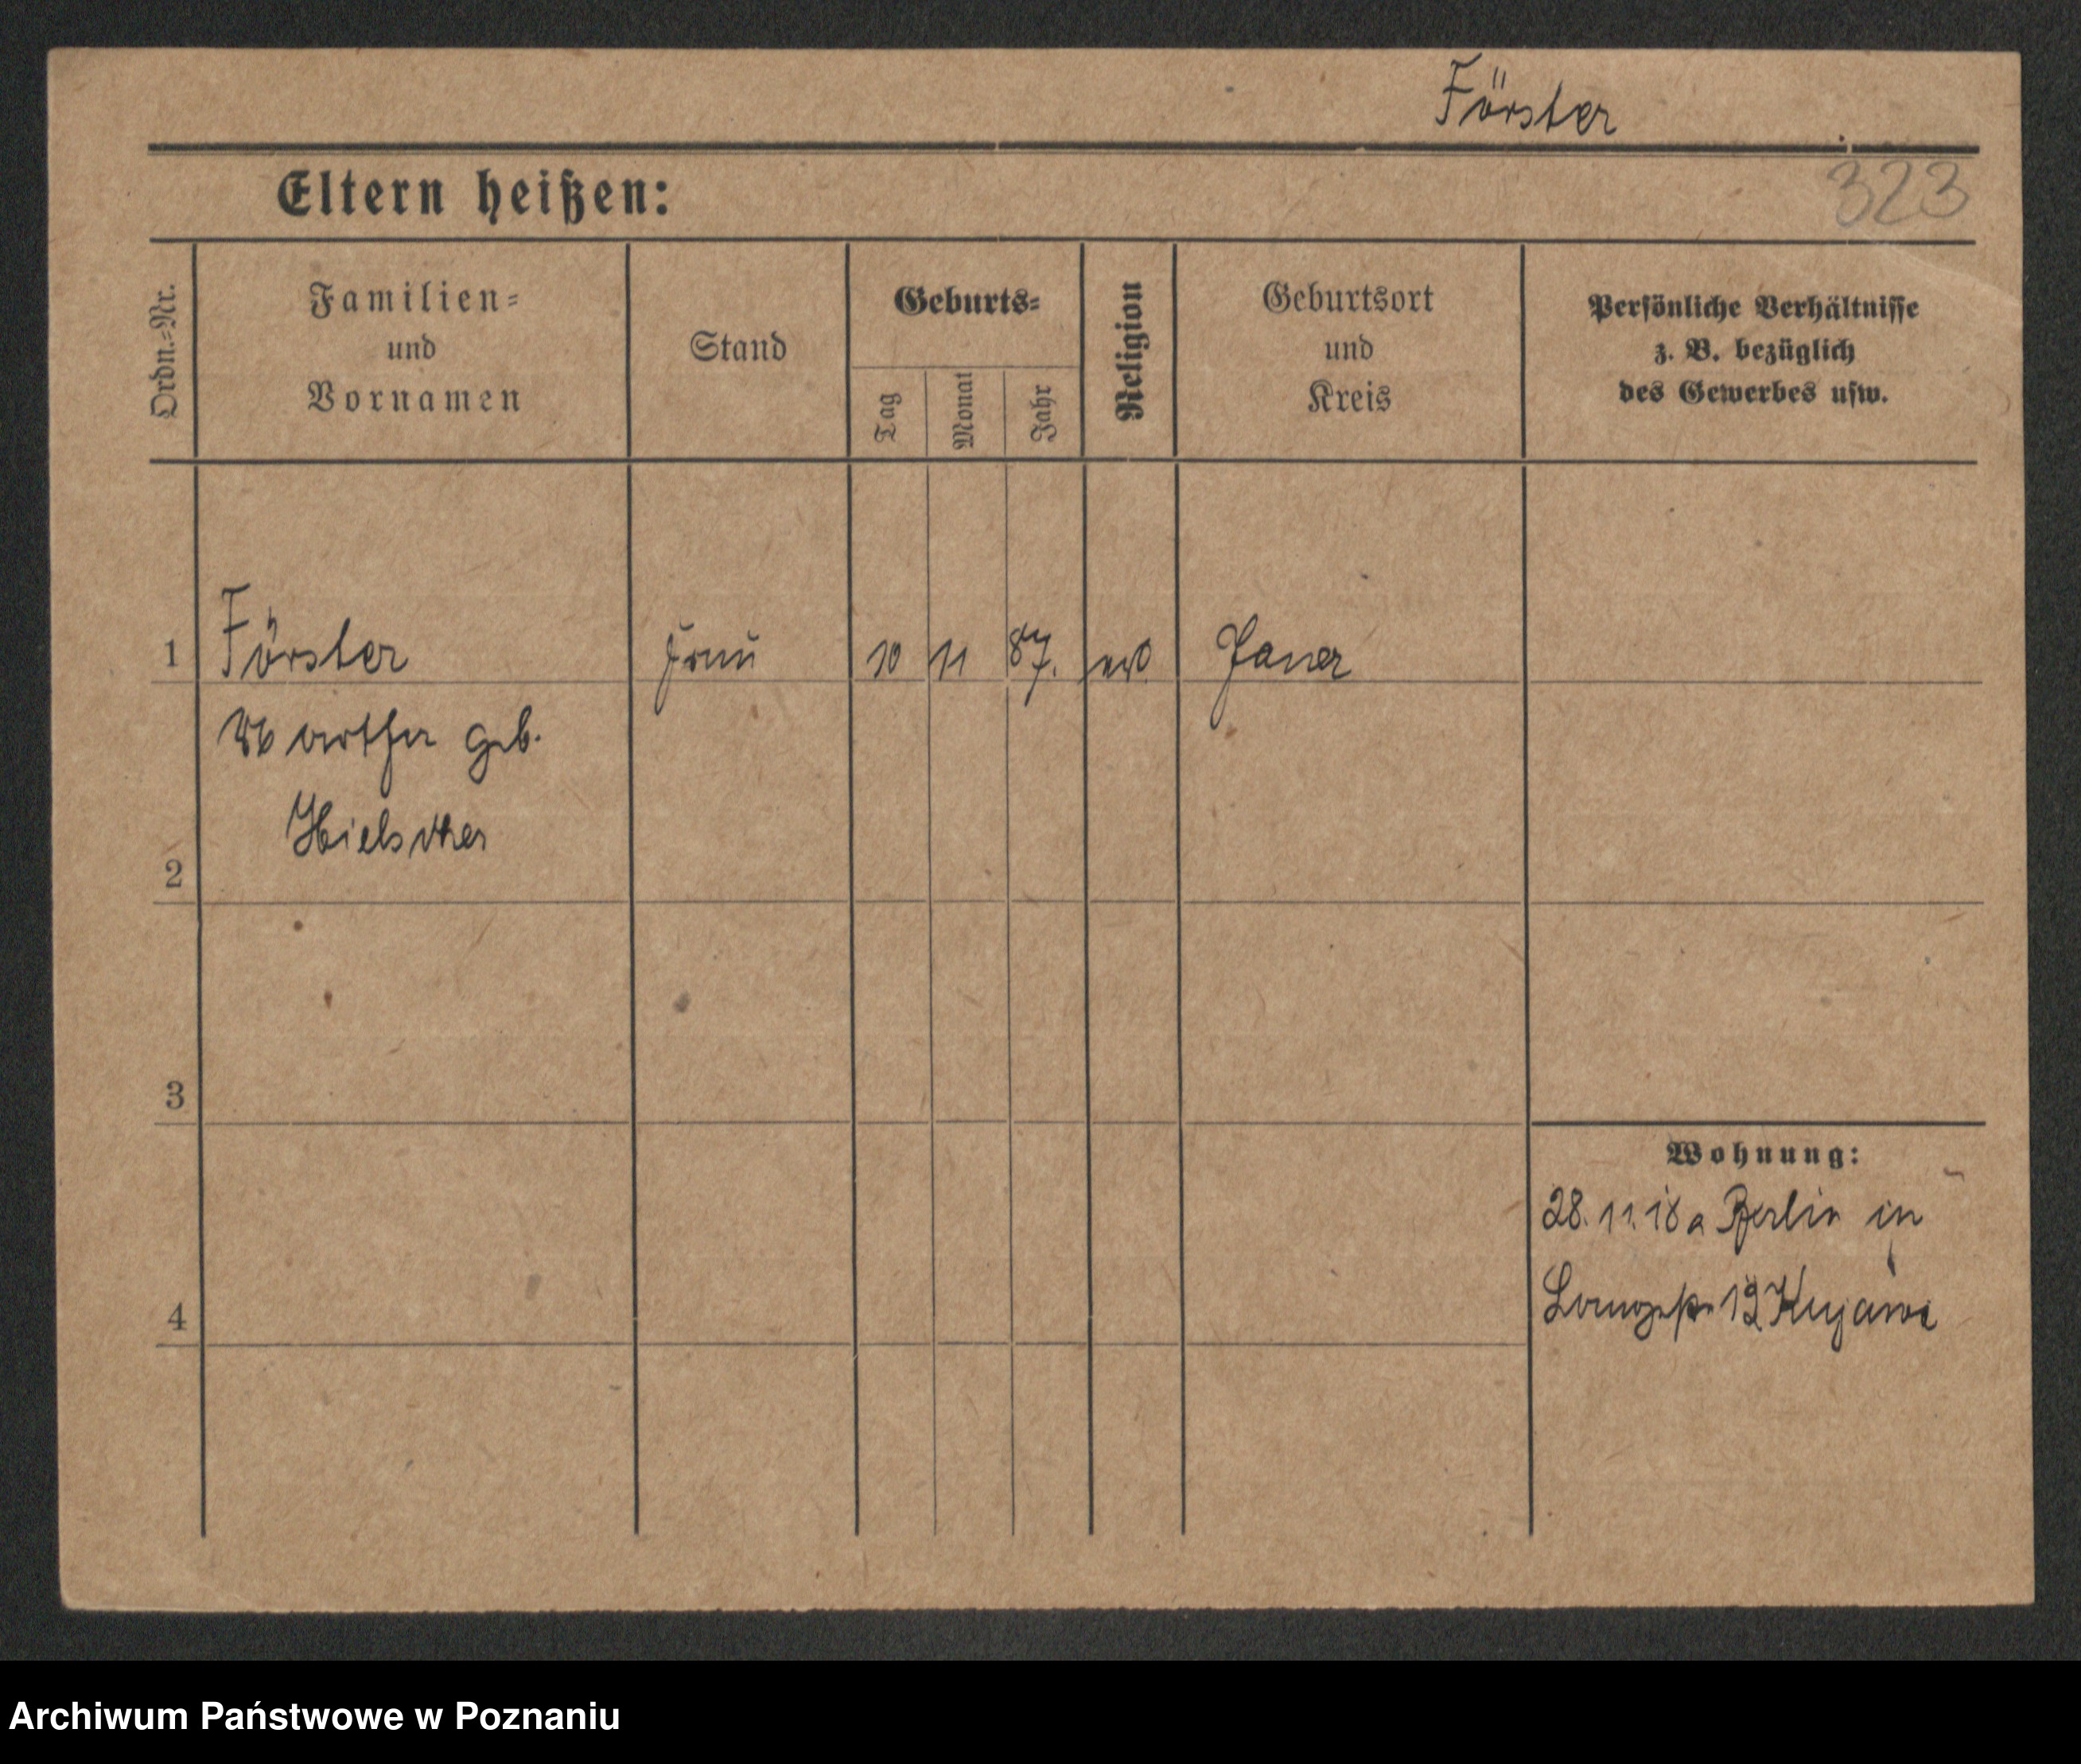 Förster
Eltern heißen:
323
Ordn.-Nr.
Familien-
und
Vornamen
Stand
Geburts-
Tag
Monat
Jahr
Religion
Geburtsort
und
Kreis
Persönliche Verhältnisse
z. B. bezüglich
des Gewerbes usw.
1
Förster
Frau
10
11
87.
Jauer
geb.
Hielscher
2
3
4
Wohnung:
28.11.18 a Berlin in
Kujawa
Archiwum Państwowe w Poznaniu